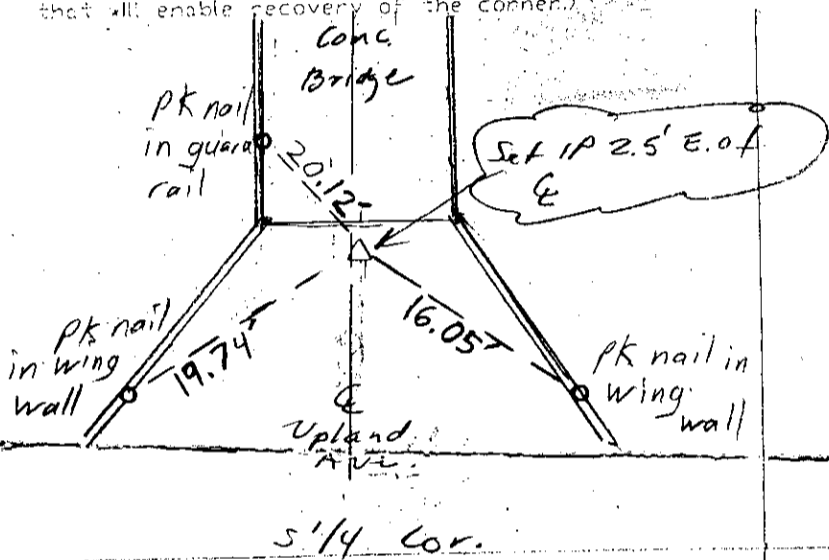 that will enable recovery of the corner.)
Conc.
Bridge
PK nail
in guard
rail
20.12
Set IP 2.5' E. of
℄
PK nail
in wing
wall
19.74'
16.05'
PK nail in
wing
wall
℄
Upland
Ave.
S 1/4 Cor.